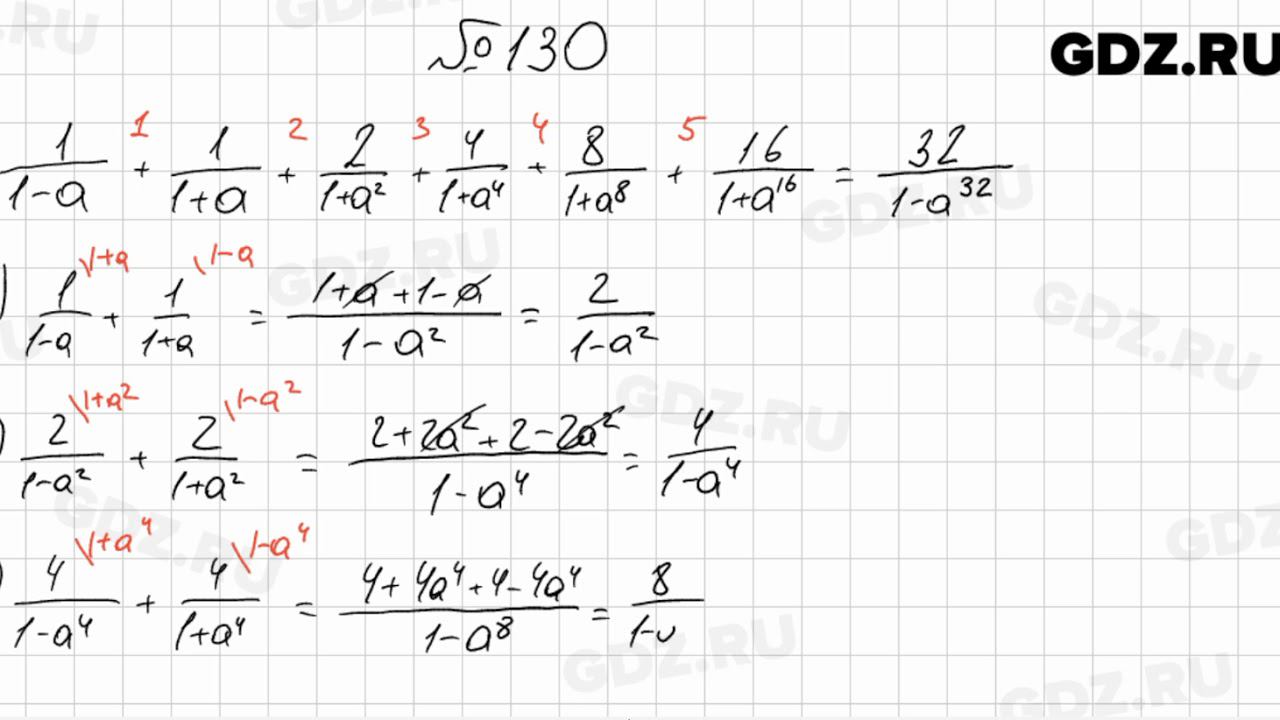 №130
GDZ.RU
1 2 3 4 5
1/(1-a) + 1/(1+a) + 2/(1+a²) + 4/(1+a⁴) + 8/(1+a⁸) + 16/(1+a¹⁶) = 32/(1-a³²)
) 1/(1-a) \1+a + 1/(1+a) \1-a = (1+a+1-a)/(1-a²) = 2/(1-a²)
) 2/(1-a²) \1+a² + 2/(1+a²) \1-a² = (2+2a²+2-2a²)/(1-a⁴) = 4/(1-a⁴)
) 4/(1-a⁴) \1+a⁴ + 4/(1+a⁴) \1-a⁴ = (4+4a⁴+4-4a⁴)/(1-a⁸) = 8/(1-